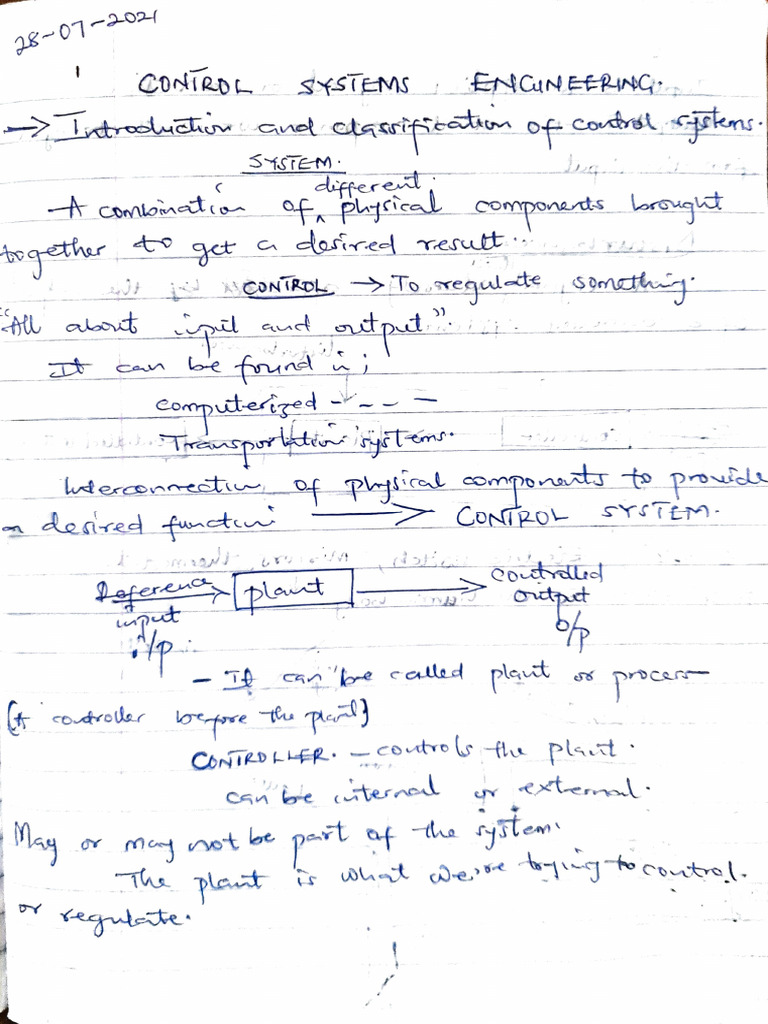 28-07-2021
1
CONTROL SYSTEMS ENGINEERING.
→ Introduction and classification of control systems.
SYSTEM.
different
A combination of ^ physical components brought
together to get a desired result.
CONTROL → To regulate something.
"All about input and output"
It can be found in;
computerized - - - -
Transportation systems.
Interconnection of physical components to provide
a desired function → CONTROL SYSTEM.
Reference input i/p → plant → controlled output o/p
- It can be called plant or process
(A controller before the plant)
CONTROLLER. - controls the plant.
can be internal or external.
May or may not be part of the system.
The plant is what we're trying to control.
or regulate.